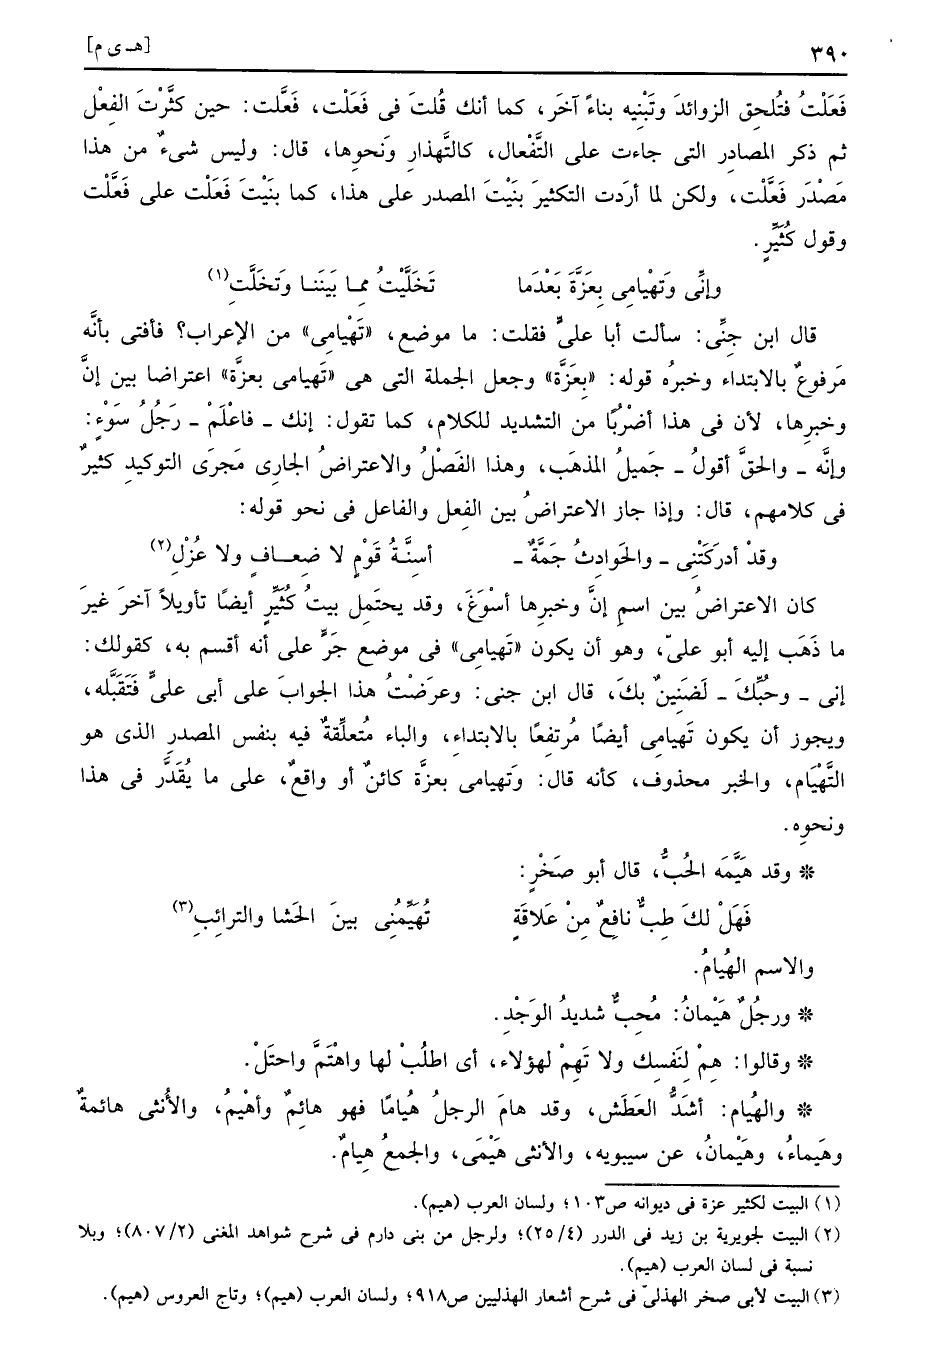 ٣٩٠ [هـ ى م]
فَعَلْتُ فتُلحق الزوائدَ وتَبْنِيه بناءً آخَر، كما أنك قُلتَ فى فَعَلْت، فَعَّلت: حين كثَّرْتَ الفِعْل
ثم ذكر المصادِر التى جاءت على التَّفْعال، كالتَّهذارِ ونَحوِها، قال: وليس شىءٌ من هذا
مَصْدَر فَعَّلْت، ولكن لما أرَدت التكثيرَ بنَيْتَ المصدر على هذا، كما بنَيْتَ فَعَلْت على فَعَّلْت
وقول كُثَيِّرٍ.
وإنِّى وتَهْيامِى بِعَزَّةَ بَعْدَمَا تَخَلَّيْتُ مما بَيَننا وتَخَلَّتِ(١)
قال ابن جِنِّى: سألت أبا علىٍّ فقلت: ما موضع، «تَهْيامِى» من الإعراب؟ فأفتى بأنَّه
مَرفوعٌ بالابتداء وخبرُه قوله: «بِعَزَّة» وجعل الجملة التى هى «تَهيامى بعزَّة» اعتراضا بين إنَّ
وخبرِها، لأن فى هذا أضْرُبًا من التشديد للكلام، كما تقول: إنك ـ فاعْلَمْ ـ رَجُلُ سَوْءٍ:
وإنَّه ـ والحقَّ أقولُ ـ جَميلُ المذهَب، وهذا الفَصْلُ والاعتراضُ الجارى مَجرَى التوكيدِ كثيرٌ
فى كلامهم، قال: وإذا جاز الاعتراضُ بين الفعلِ والفاعل فى نحو قوله:
وقدْ أدرَكَتْنِى ـ والحَوادثُ جَمَّةٌ ـ أسِنَّةُ قَوْمٍ لا ضِعـافٍ ولا عُزْلِ(٢)
كان الاعتراضُ بين اسمِ إنَّ وخبرِها أسْوَغَ، وقد يحتَمِل بيتُ كُثَيِّرٍ أيضًا تأويلاً آخرَ غيرَ
ما ذَهَب إليه أبو علىّ، وهو أن يكون «تَهيامِى» فى موضع جَرٍّ على أنه أقسم به، كقولك:
إنى ـ وحُبِّكَ ـ لَضَنِينٌ بكَ، قال ابن جنى: وعرَضْتُ هذا الجوابَ على أبى علىٍّ فَتَقَبَّله،
ويجوز أن يكون تَهيامِى أيضًا مُرتفعًا بالابتداء، والباء مُتعلِّقةٌ فيه بنفس المصدرِ الذى هو
التَّهْيَام، والخبر محذوف، كأنه قال: وتَهيامى بعزَّة كائنٌ أو واقعٌ، على ما يُقَدَّر فى هذا
ونحوِه.
* وقد هَيَّمَه الحُبُّ، قال أبو صَخْرٍ:
فَهَلْ لكَ طِبٌّ نافِعٌ مِنْ عَلاقَةٍ تُهَيِّمُنِى بينَ الحَشا والترائبِ(٣)
والاسم الهُيامُ.
* ورجُلٌ هَيْمانُ: مُحِبٌّ شديدُ الوَجْدِ.
* وقالوا: هِمْ لنَفسِك ولا تَهِمْ لهؤلاء، أى اطلُبْ لها واهْتَمَّ واحتَلْ.
* والهُيام: أشَدُّ العَطَش، وقد هامَ الرجلُ هُيامًا فهو هائمٌ وأهْيمُ، والأُنثى هائمةٌ
وهَيماءُ، وهَيْمانُ، عن سيبويه، والأنثى هَيْمَى، والجمعُ هِيامٌ.
(١) البيت لكثير عزة فى ديوانه ص١٠٣؛ ولسان العرب (هيم).
(٢) البيت لجويرية بن زيد فى الدرر (٢٥/٤)؛ ولرجل من بنى دارم فى شرح شواهد المغنى (٨٠٧/٢)؛ وبلا
نسبة فى لسان العرب (هيم).
(٣) البيت لأبى صخر الهذلىّ فى شرح أشعار الهذليين ص٩١٨؛ ولسان العرب (هيم)؛ وتاج العروس (هيم).